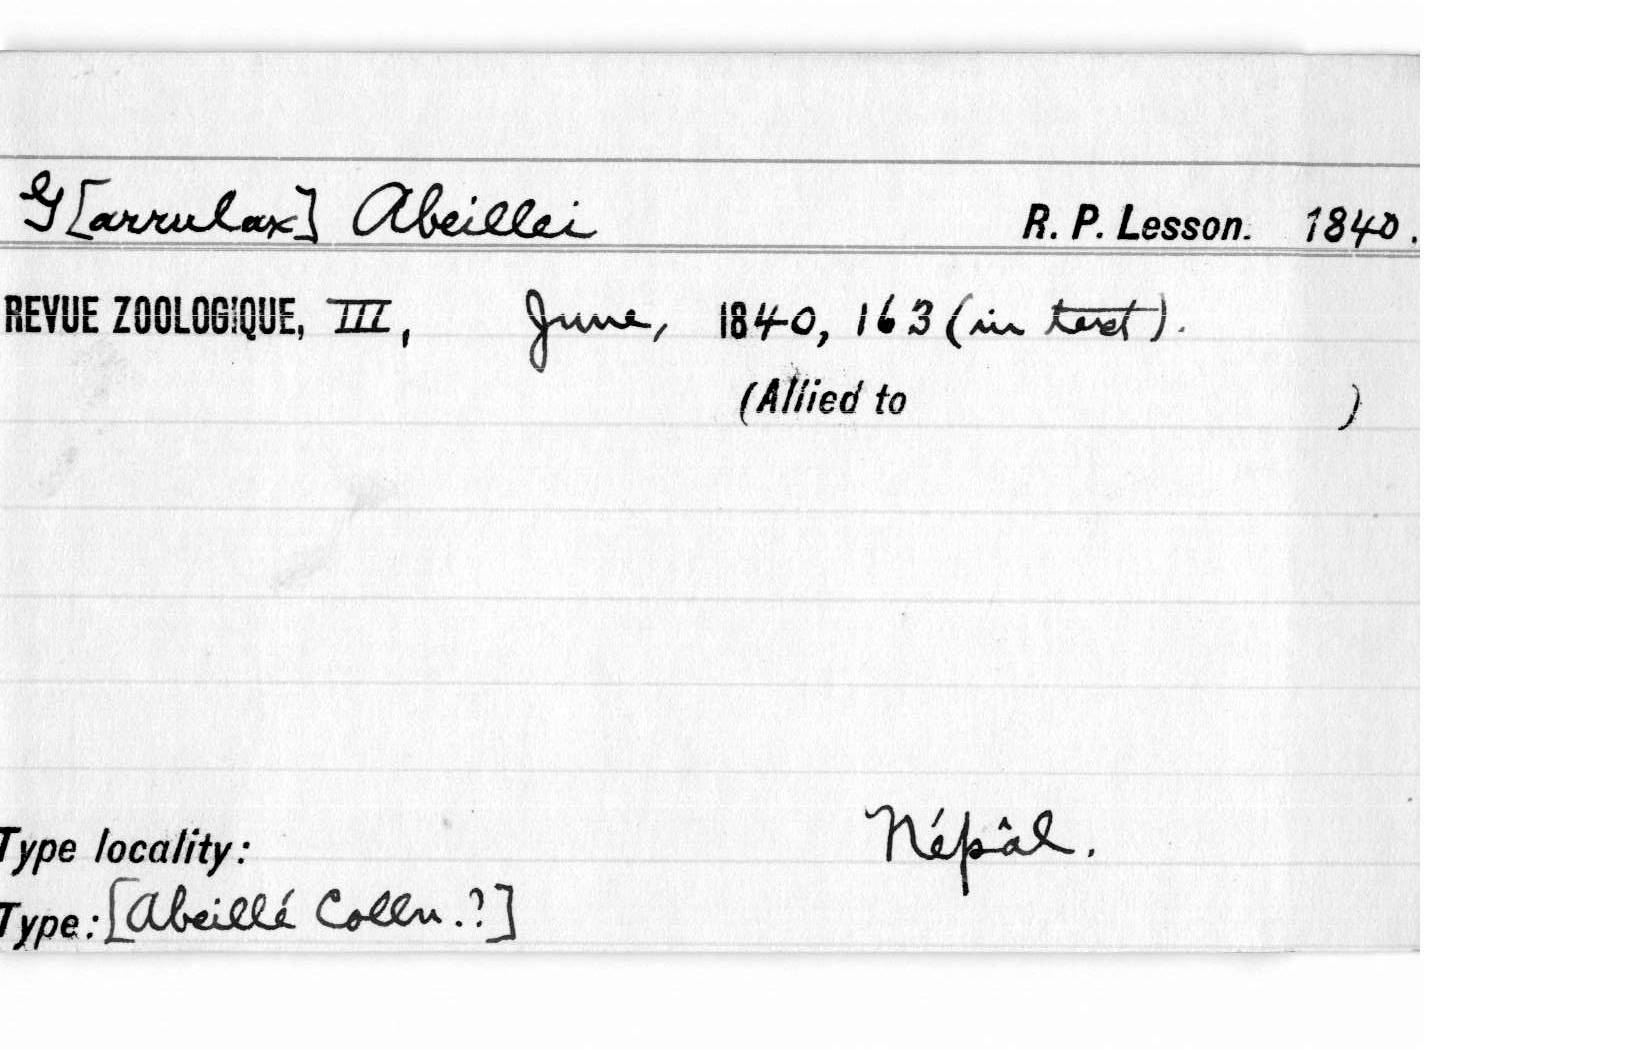 G[arrulax] Abeillei R. P. Lesson. 1840.
REVUE ZOOLOGIQUE, III, June, 1840, 163 (in text).
(Allied to )
Type locality: Népâl.
Type: [Abeillé Colln.?]